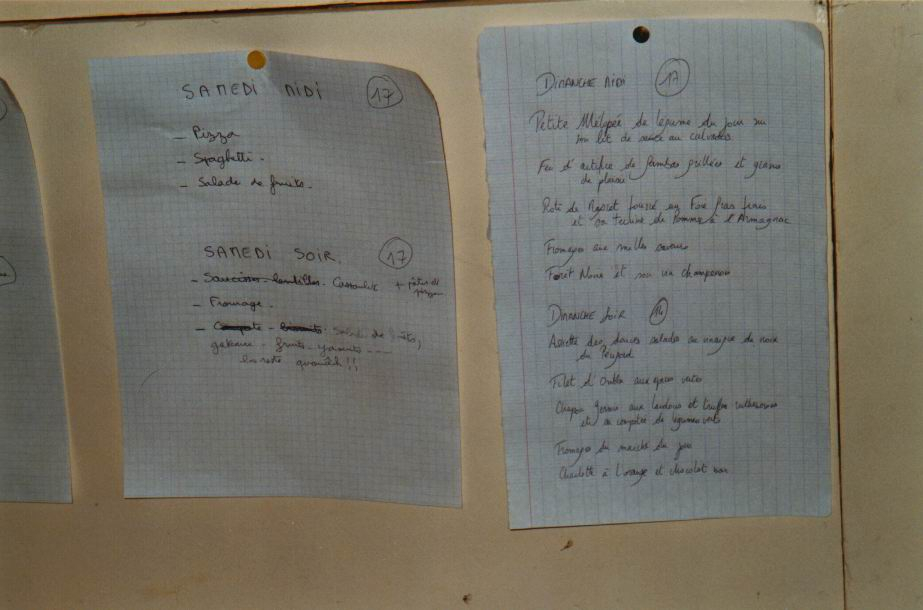 SAMEDI MIDI 17
- Pizza
- Spaghetti.
- Salade de fruits.
SAMEDI SOIR. 17
- Saucisson lentilles. Cassoulet + pâtes et pizza
- Fromage.
- Compote - biscuits Salade de fruits,
gateaux - fruits - yaourts ---
les reste quouâh !!
DIMANCHE MIDI 17
Petite Mélopée de legume du jour sur
son lit de sauce au calvados
Feu d'artifice de Jambas grillées et
de plaisir
Roti de fourré au Foie Gras
et sa terrine de Pommes à l'Armagnac
Fromages aux milles saveurs
Foret Noire et son vin champenois
DIMANCHE SOIR 14
Assiette des douces salades au vinaigre de noix
du
Filet d' aux epices
Chapon aux et truffes
et sa compotée de legumes verts
Fromages du marché du jour
Charlotte à l'orange et chocolat noir